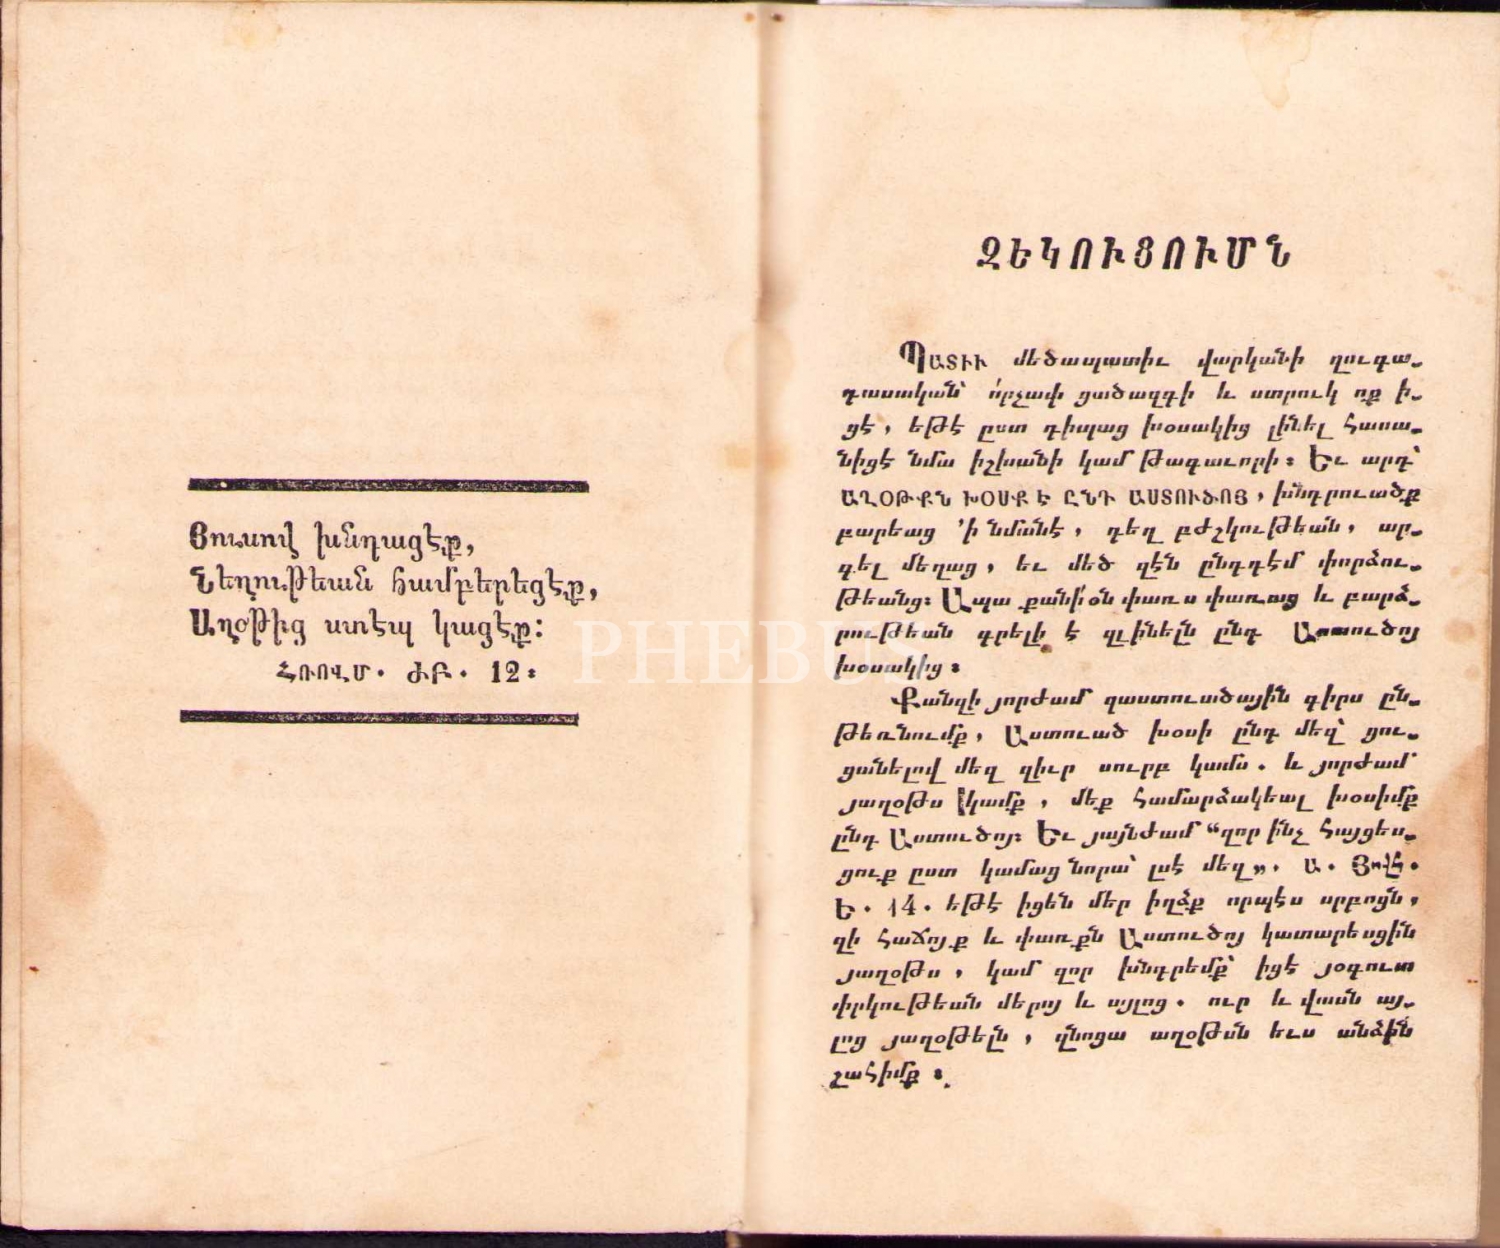 Յուսով խնդացէք,
Նեղութեան համբերեցէք,
Աղօթից ստէպ կացէք:
ՀՌՈՎՄ. ԺԲ. 12:
ԶԵԿՈՒՑՈՒՄՆ
ՊԱՏԻՒ մեծապատիւ վարկանի ղուգա-
դասական՝ ո՛րչափ ցածազգի և ստրուկ ոք ի-
ցէ, եթէ ըստ դիպաց խօսակից լինել հասա-
նիցէ նմա իշխանի կամ թագաւորի: Եւ արդ՝
ԱՂՕԹՔՆ ԽՕՍՔ Է ԸՆԴ ԱՍՏՈՒԾՈՅ, խնդրուածք
բարեաց ՚ի նմանէ, դեղ բժշկութեան, ար-
գել մեղաց, եւ մեծ զէն ընդդէմ փորձու-
թեանց: Ապա քանի՛օն փառս փառաց և բարձ-
րութեան գրելի է զլինելն ընդ Աստուծոյ
խօսակից:
Քանզի յորժամ զաստուածային գիրս ըն-
թեռնումք, Աստուած խօսի ընդ մեզ՝ ցու-
ցանելով մեզ զիւր սուրբ կամս. և յորժամ՝
յաղօթս կամք, մեք համարձակեալ խօսիմք
ընդ Աստուծոյ: Եւ յայնժամ “զոր ինչ հայցես-
ցուք ըստ կամաց նորա՝ լսէ մեզ„. Ա. Յովհ.
Ե. 14. եթէ իցեն մեր իղձք որպէս սրբոցն,
զի հաճոյք և փառքն Աստուծոյ կատարեսցին
յաղօթս, կամ զոր խնդրեմք՝ իցէ յօգուտ
փրկութեան մերոյ և այլոց. ուր և վասն այ-
լոց յաղօթելն, զնոցա աղօթսն եւս անձին
շահիմք:
PHEBUS